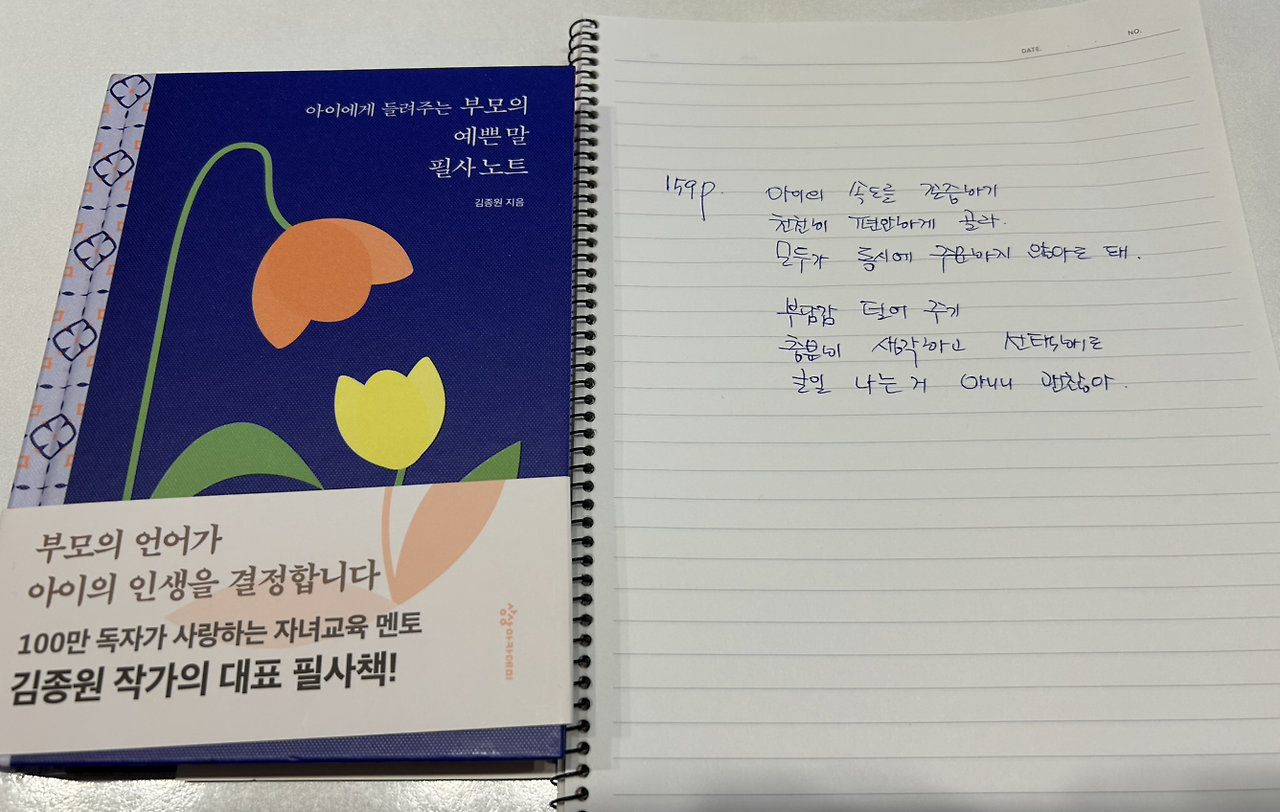 아이에게 들려주는 부모의
예쁜 말
필사 노트
김종원 지음
부모의 언어가
아이의 인생을 결정합니다
100만 독자가 사랑하는 자녀교육 멘토
김종원 작가의 대표 필사책!
상상아카데미
DATE. NO.
159p. 아이의 속도를 존중하기
천천히 편안하게 골라.
모두가 동시에 주문하지 않아도 돼.
부담감 덜어 주기
충분히 생각하고 선택해도
큰일 나는 거 아니니 괜찮아.